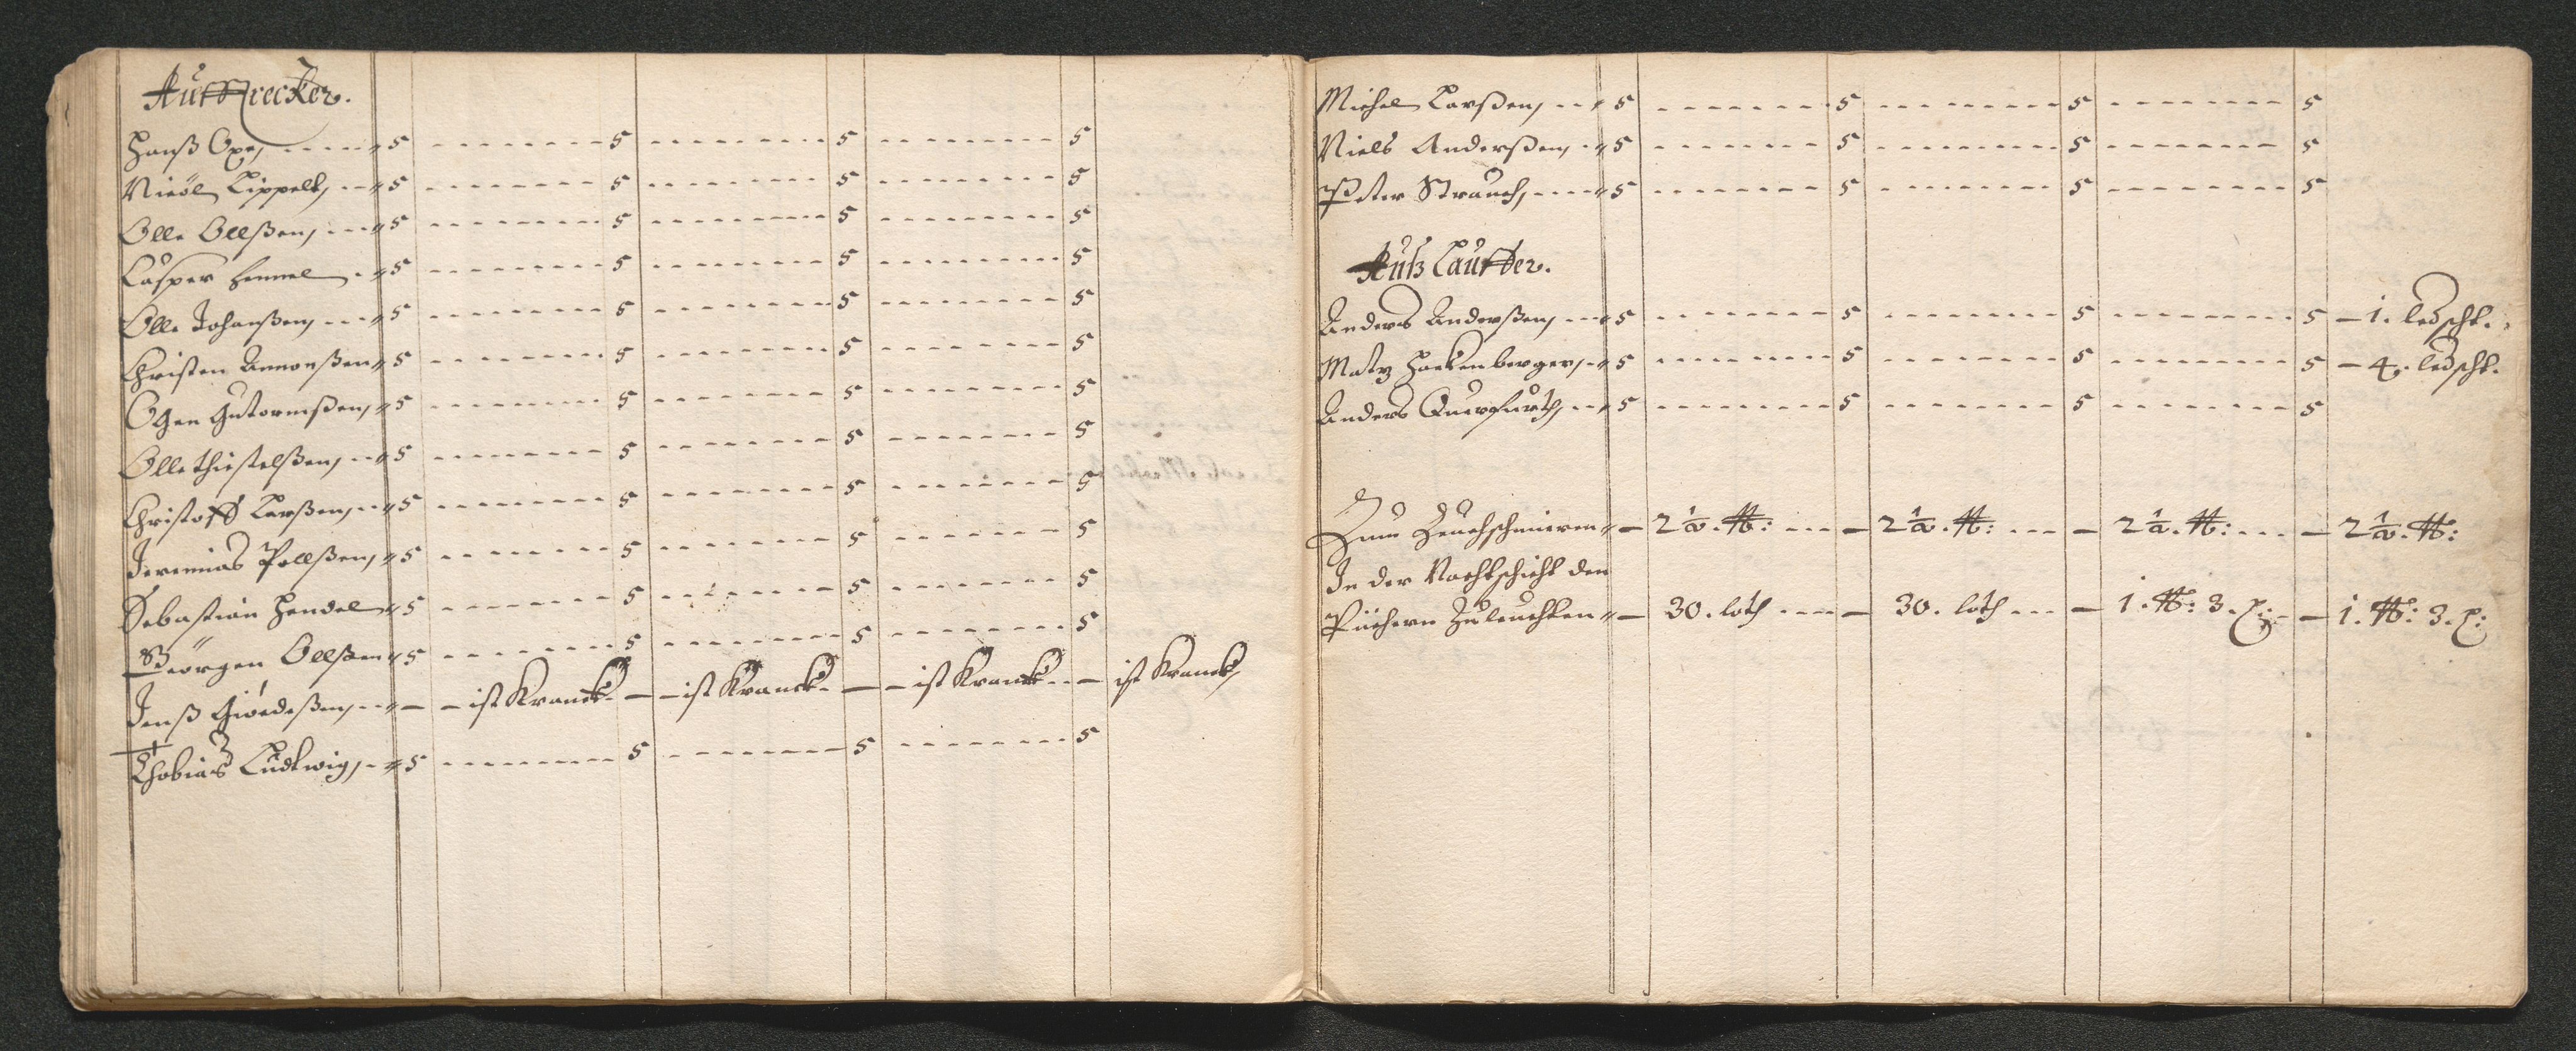 Auffstrecker.
Hanß Oxe, 5 5 5 5
Nicol Lippelt, 5 5 5 5
Olle Ollßen, 5 5 5 5
Casper Hemel 5 5 5 5
Olle Johanßen, 5 5 5 5
Christen 5 5 5 5
Ogen Gutormßen, 5 5 5 5
Olle Thistelßen, 5 5 5 5
Christoff Larßen, 5 5 5 5
Jeremias Pollßen, 5 5 5 5
Sebastian Hendel 5 5 5 5
Georgen Ollßen 5 5 5 5
Jenß – ist Kranck – ist Kranck – ist Kranck – ist Kranck
Thobias Ludtwig, 5 5 5 5
Michel Larßen, 5 5 5 5
Niels Anderßen, 5 5 5 5
Peter Strauch, 5 5 5 5
Außlauffer.
Anders Anderßen, 5 5 5 5 – 1. ledscht.
Matz Hackenberger, 5 5 5 5 – 4. ledscht.
Anders Querfurth, 5 5 5 5
Zum Zeuchschmieren – 2 1/2. ℔: – 2 1/2. ℔: – 2 1/2. ℔: – 2 1/2. ℔:
In der Nachtschicht den
Püchern Zuleuchten – 30. loth – 30. loth – 1. ℔: 3. – 1. ℔: 3.